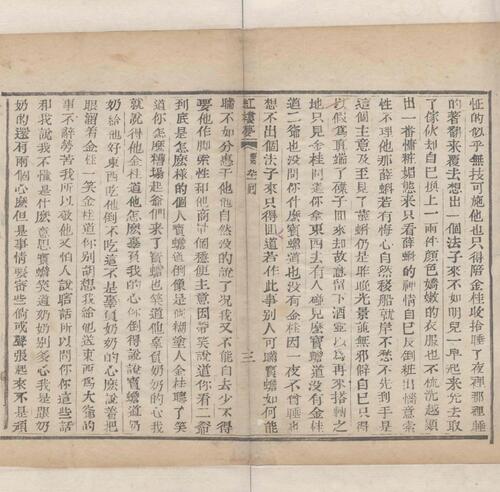 怔的似乎無技可施他也只得陪金桂收拾睡了夜裡那裡睡
的著翻來覆去想出一個法子來不如明兒一早起來先去取
了傢伙却自已換上一兩件顏色嬌嫩的衣服也不梳洗越顯
出一番慵粧媚態來只看薛蝌的神情自已反倒粧出惱意索
性不理他那薛蝌若有悔心自然移船就岸不愁不先到手是
這個主意及至見了薛蝌仍是昨晚光景並無邪僻自已只得
以假爲眞端了碟子回來却故意留下酒壺以爲再來搭轉之
地只見金桂問道你拿東西去有人碰見麼寶蟾道沒有金桂
道二爺也沒問你什麼寶蟾道也沒有金桂因一夜不曾睡也
想不出個法子來只得回道若作此事別人可瞞寶蟾如何能
紅樓夢 第九十一回 三
瞞不如分惠于他他自然沒的說了况我又不能自去少不得
要他作脚索性和他商量個穩便主意因帶笑說道你看二爺
到底是怎麽樣的個人寶蟾道倒像是個糊塗人金桂聽了笑
道你怎麽糟塌起爺們來了寶蟾也笑道他辜負奶奶的心我
就說得他金桂道他怎麽辜負我的心你倒得說說寶蟾道奶
奶給他好東西吃他倒不吃這不是辜負奶奶的心麽說着把
眼溜着金桂一笑金桂道你別胡想我給他送東西爲大爺的
事不辭勞苦我所以敬他又怕人說瞎話所以問你你這些話
和我說我不懂是什麽意思寶蟾笑道奶奶別多心我是跟奶
奶的還有兩個心麽但是事情要密些倘或聲張起來不是頑